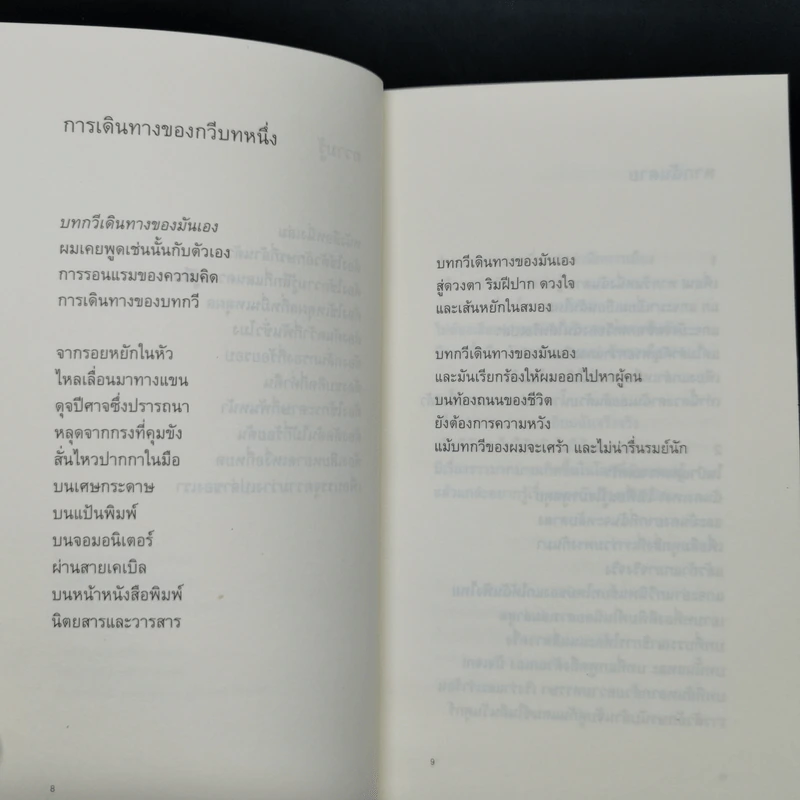 การเดินทางของกวีบทหนึ่ง
บทกวีเดินทางของมันเอง
ผมเคยพูดเช่นนั้นกับตัวเอง
การรอนแรมของความคิด
การเดินทางของบทกวี
จากรอยหยักในหัว
ไหลเลื่อนมาทางแขน
ดุจปีศาจซึ่งปรารถนา
หลุดจากกรงที่คุมขัง
สั่นไหวปากกาในมือ
บนเศษกระดาษ
บนแป้นพิมพ์
บนจอมอนิเตอร์
ผ่านสายเคเบิล
บนหน้าหนังสือพิมพ์
นิตยสารและวารสาร
8
บทกวีเดินทางของมันเอง
สู่ดวงตา ริมฝีปาก ดวงใจ
และเส้นหยักในสมอง
บทกวีเดินทางของมันเอง
และมันเรียกร้องให้ผมออกไปหาผู้คน
บนท้องถนนของชีวิต
ยังต้องการความหวัง
แม้บทกวีของผมจะเศร้า และไม่น่ารื่นรมย์นัก
9